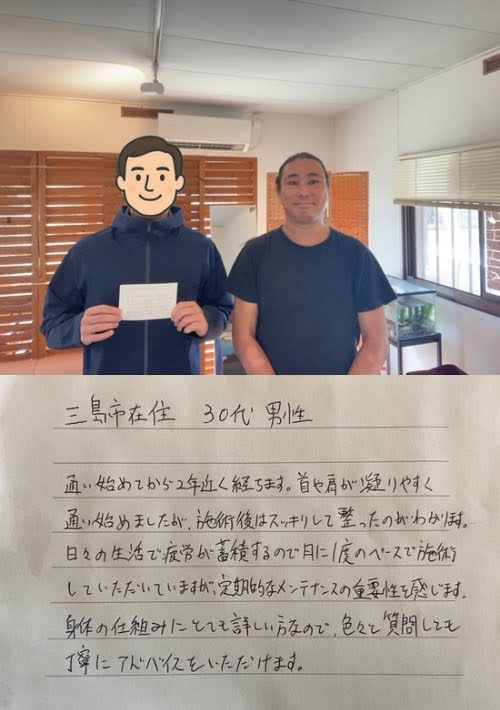 三島市在住　30代 男性
通い始めてから2年近く経ちます。首や肩が凝りやすく
通い始めましたが、施術後はスッキリして整ったのがわかります。
日々の生活で疲労が蓄積するので月に1度のペースで施術
していただいていますが、定期的なメンテナンスの重要性を感じます。
身体の仕組みにとても詳しい方なので、色々と質問しても
丁寧にアドバイスをいただけます。